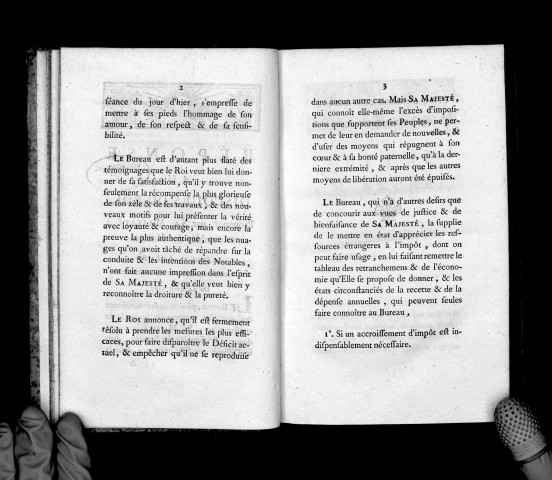 2
séance du jour d'hier, s'empresse de
mettre à ses pieds l'hommage de son
amour, de son respect & de sa sensi-
bilité.
LE Bureau est d'autant plus flaté des
témoignages que le Roi veut bien lui don-
ner de sa satisfaction, qu'il y trouve non-
seulement la récompense la plus glorieuse
de son zèle & de ses travaux, & des nou-
veaux motifs pour lui présenter la vérité
avec loyauté & courage, mais encore la
preuve la plus authentique, que les nua-
ges qu'on avoit tâché de répandre sur la
conduite & les intentions des Notables,
n'ont fait aucune impression dans l'esprit
de SA MAJESTÉ, & qu'elle veut bien y
reconnoître la droiture & la pureté.
LE ROI annonce, qu'il est fermement
résolu à prendre les mesures les plus effi-
caces, pour faire disparoître le Déficit ac-
tuel, & empêcher qu'il ne se reproduise
3
dans aucun autre cas. Mais SA MAJESTÉ,
qui connoit elle-même l'excès d'imposi-
tions que supportent ses Peuples, ne per-
met de leur en demander de nouvelles, &
d'user des moyens qui répugnent à son
cœur & à sa bonté paternelle, qu'à la der-
niere extrémité, & après que les autres
moyens de libération auront été épuisés.
LE Bureau, qui n'a d'autres desirs que
de concourir aux vues de justice & de
bienfaisance de SA MAJESTÉ, la supplie
de le mettre en état d'apprécier les res-
sources étrangeres à l'impôt, dont on
peut faire usage, en lui faisant remettre le
tableau des retranchemens & de l'écono-
mie qu'Elle se propose de donner, & les
états circonstanciés de la recette & de la
dépense annuelles, qui peuvent seules
faire connoître au Bureau,
1°. Si un accroissement d'impôt est in-
dispensablement nécessaire.